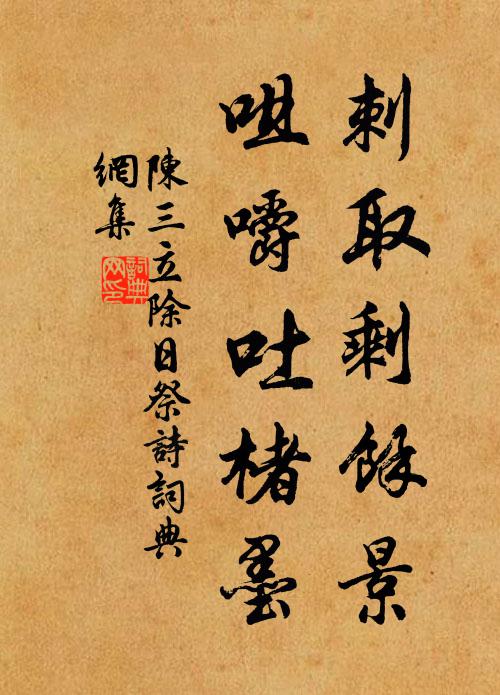 刺取剩餘景
咀嚼吐楮墨
陳三立除日祭詩詞典
網集
詞典網印